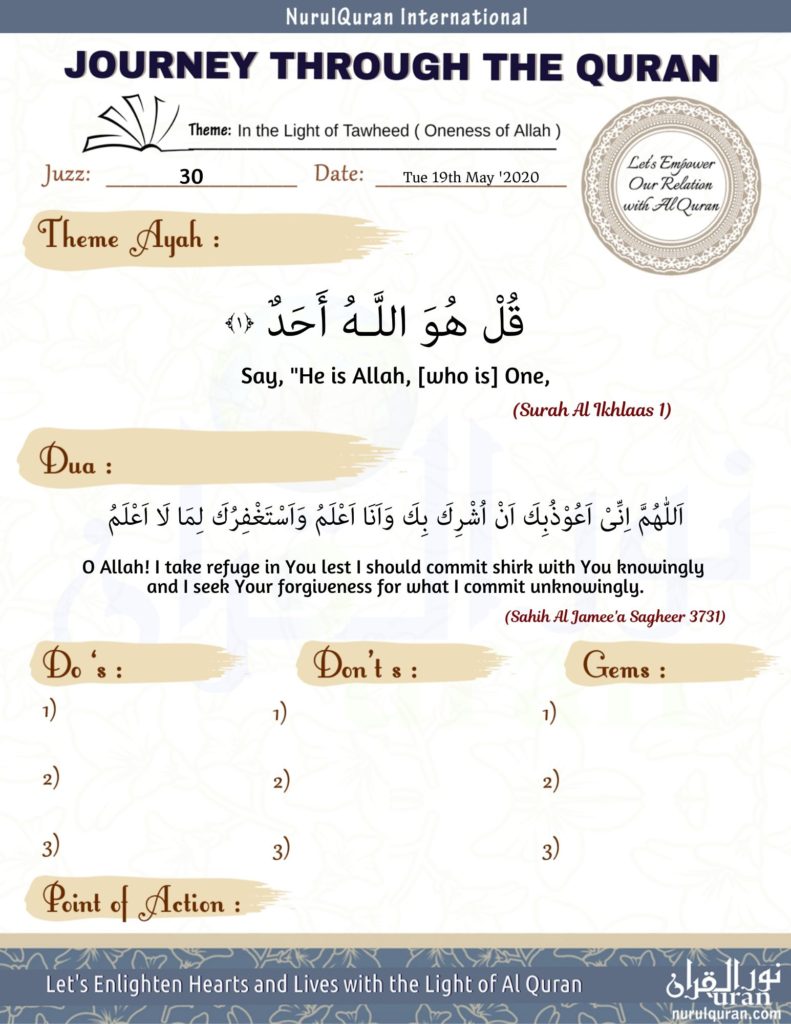 NurulQuran International
JOURNEY THROUGH THE QURAN
Theme: In the Light of Tawheed ( Oneness of Allah )
Juzz: 30 Date: Tue 19th May '2020
Let's Empower
Our Relation
with Al Quran
Theme Ayah :
قُلْ هُوَ اللَّـهُ أَحَدٌ ﴿١﴾
Say, "He is Allah, [who is] One,
(Surah Al Ikhlaas 1)
Dua :
اَللّٰهُمَّ اِنِّىْ اَعُوْذُبِكَ اَنْ اُشْرِكَ بِكَ وَاَنَا اَعْلَمُ وَاَسْتَغْفِرُكَ لِمَا لَا اَعْلَمُ
O Allah! I take refuge in You lest I should commit shirk with You knowingly
and I seek Your forgiveness for what I commit unknowingly.
(Sahih Al Jamee'a Sagheer 3731)
Do 's : Don't s : Gems :
1) 1) 1)
2) 2) 2)
3) 3) 3)
Point of Action :
Let's Enlighten Hearts and Lives with the Light of Al Quran
نور القرآن
uran
nurulquran.com